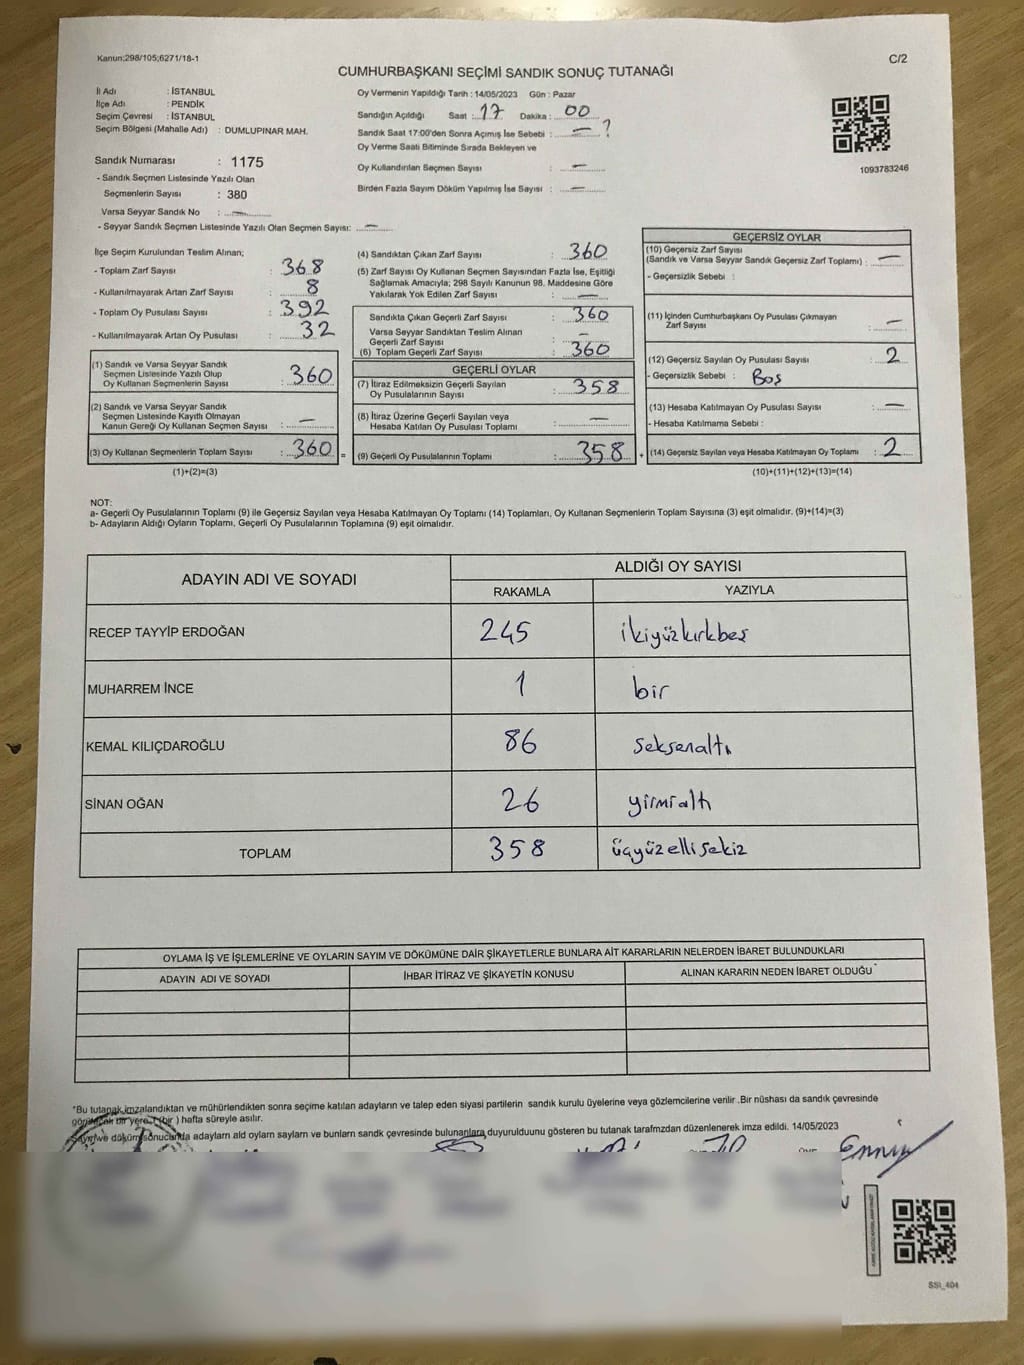 Kanun:298/105;6271/18-1
C/2
CUMHURBAŞKANI SEÇİMİ SANDIK SONUÇ TUTANAĞI
İl Adı : İSTANBUL
İlçe Adı : PENDİK
Seçim Çevresi : İSTANBUL
Seçim Bölgesi (Mahalle Adı) : DUMLUPINAR MAH.
Sandık Numarası : 1175
- Sandık Seçmen Listesinde Yazılı Olan
Seçmenlerin Sayısı : 380
Varsa Seyyar Sandık No : —
- Seyyar Sandık Seçmen Listesinde Yazılı Olan Seçmen Sayısı: —
Oy Vermenin Yapıldığı Tarih : 14/05/2023 Gün : Pazar
Sandığın Açıldığı Saat : 17 Dakika : 00
Sandık Saat 17:00'den Sonra Açımış İse Sebebi : — ?
Oy Verme Saati Bitiminde Sırada Bekleyen ve
Oy Kullandırılan Seçmen Sayısı : —
Birden Fazla Sayım Döküm Yapılmış İse Sayısı : —
1093783246
İlçe Seçim Kurulundan Teslim Alınan;
- Toplam Zarf Sayısı : 368
- Kullanılmayarak Artan Zarf Sayısı : 8
- Toplam Oy Pusulası Sayısı : 392
- Kullanılmayarak Artan Oy Pusulası : 32
(1) Sandık ve Varsa Seyyar Sandık
Seçmen Listesinde Yazılı Olup
Oy Kullanan Seçmenlerin Sayısı : 360
(2) Sandık ve Varsa Seyyar Sandık
Seçmen Listesinde Kayıtlı Olmayan
Kanun Gereği Oy Kullanan Seçmen Sayısı : —
(3) Oy Kullanan Seçmenlerin Toplam Sayısı : 360 =
(1)+(2)=(3)
(4) Sandıktan Çıkan Zarf Sayısı : 360
(5) Zarf Sayısı Oy Kullanan Seçmen Sayısından Fazla İse, Eşitliği
Sağlamak Amacıyla; 298 Sayılı Kanunun 98. Maddesine Göre
Yakılarak Yok Edilen Zarf Sayısı : —
Sandıkta Çıkan Geçerli Zarf Sayısı : 360
Varsa Seyyar Sandıktan Teslim Alınan
Geçerli Zarf Sayısı : —
(6) Toplam Geçerli Zarf Sayısı : 360
GEÇERLİ OYLAR
(7) İtiraz Edilmeksizin Geçerli Sayılan
Oy Pusulalarının Sayısı : 358
(8) İtiraz Üzerine Geçerli Sayılan veya
Hesaba Katılan Oy Pusulaları Toplamı : —
(9) Geçerli Oy Pusulalarının Toplamı : 358 +
GEÇERSİZ OYLAR
(10) Geçersiz Zarf Sayısı
(Sandık ve Varsa Seyyar Sandık Geçersiz Zarf Toplamı) : —
- Geçersizlik Sebebi :
(11) İçinden Cumhurbaşkanı Oy Pusulası Çıkmayan
Zarf Sayısı : —
(12) Geçersiz Sayılan Oy Pusulası Sayısı : 2
- Geçersizlik Sebebi : Boş
(13) Hesaba Katılmayan Oy Pusulası Sayısı : —
- Hesaba Katılmama Sebebi :
(14) Geçersiz Sayılan veya Hesaba Katılmayan Oy Toplamı : 2
(10)+(11)+(12)+(13)=(14)
NOT:
a- Geçerli Oy Pusulalarının Toplamı (9) ile Geçersiz Sayılan veya Hesaba Katılmayan Oy Toplamı (14) Toplamları, Oy Kullanan Seçmenlerin Toplam Sayısına (3) eşit olmalıdır. (9)+(14)=(3)
b- Adayların Aldığı Oyların Toplamı, Geçerli Oy Pusulalarının Toplamına (9) eşit olmalıdır.
ADAYIN ADI VE SOYADI
ALDIĞI OY SAYISI
RAKAMLA YAZIYLA
RECEP TAYYİP ERDOĞAN 245 ikiyüzkırkbeş
MUHARREM İNCE 1 bir
KEMAL KILIÇDAROĞLU 86 seksenaltı
SİNAN OĞAN 26 yirmialtı
TOPLAM 358 üçyüzellisekiz
OYLAMA İŞ VE İŞLEMLERİNE VE OYLARIN SAYIM VE DÖKÜMÜNE DAİR ŞİKAYETLERLE BUNLARA AİT KARARLARIN NELERDEN İBARET BULUNDUKLARI
ADAYIN ADI VE SOYADI İHBAR İTİRAZ VE ŞİKAYETİN KONUSU ALINAN KARARIN NEDEN İBARET OLDUĞU
*Bu tutanak imzalandıktan ve mühürlendikten sonra seçime katılan adayların ve talep eden siyasi partilerin sandık kurulu üyelerine veya gözlemcilerine verilir .Bir nüshası da sandık çevresinde
bir yere 1 (bir ) hafta süreyle asılır.
Sayım ve döküm sonucunda adayların ald oylarn saylarn ve bunlarn sandk çevresinde bulunanlara duyurulduunu gösteren bu tutanak tarafmzdan düzenlenerek imza edildi. 14/05/2023
SSI_404